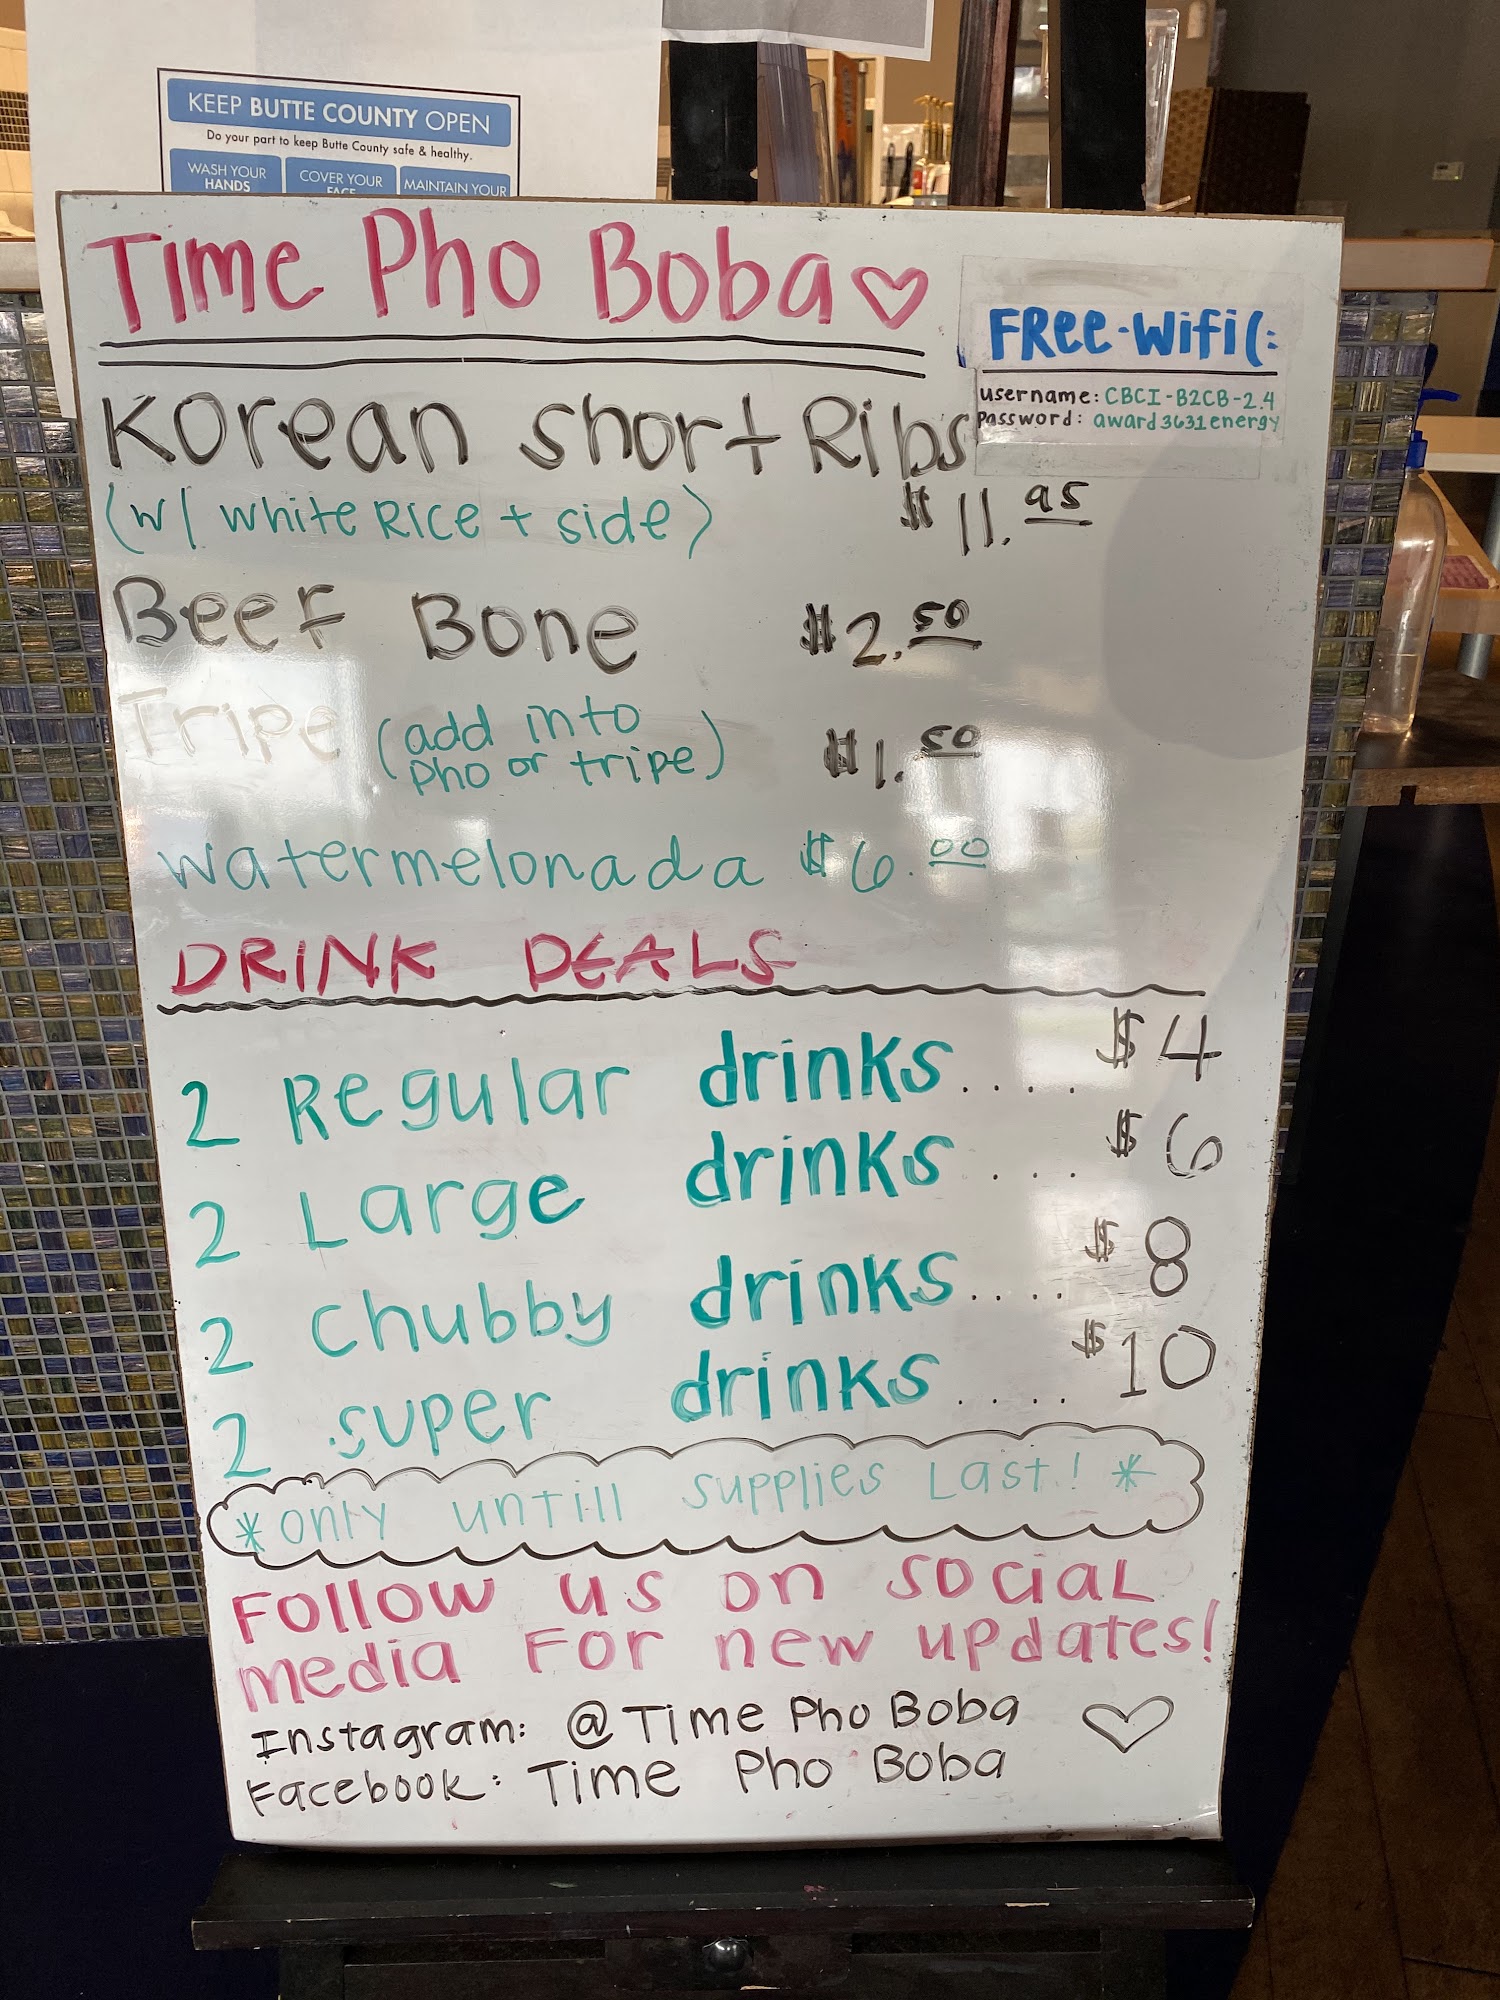 KEEP BUTTE COUNTY OPEN
Do your part to keep Butte County safe & healthy.
WASH YOUR HANDS
COVER YOUR FACE
MAINTAIN YOUR
Time Pho Boba
FREE-Wifi(:
username: CBCI-B2CB-2.4
Password: award3631energy
Korean Short Ribs
(w/ white Rice + side) $11.95
Beef Bone $2.50
Tripe (add into pho or tripe) $1.50
watermelonada $6.00
DRINK DEALS
2 Regular drinks.... $4
2 Large drinks.... $6
2 Chubby drinks.... $8
2 super drinks.... $10
*only untill supplies Last! *
Follow us on social
media For new updates!
Instagram: @Time Pho Boba
Facebook: Time Pho Boba